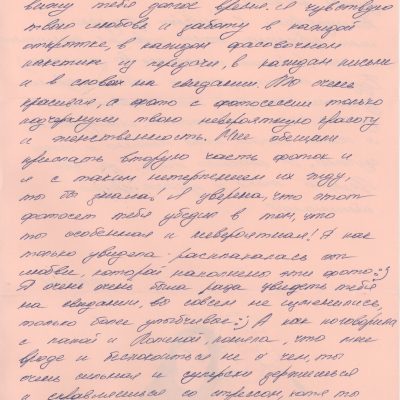 вижу тебя долгое время. Я чувствую
твою любовь и заботу в каждой
открытке, в каждом фасовочном
пакетике из передачи, в каждом письме
и в словах на свидании. Ты очень
красивая, а фото с фотосессии только
подчеркнули твою невероятную красоту
и женственность. Мне обещали
прислать вторую часть фоток и
я с таким нетерпением их жду,
ты бы знала! Я уверена, что этот
фотосет тебя убедил в том, что
ты особенная и невероятная! Я как
только увидела - расплакалась от
любви, которой наполнены эти фото:)
Я очень очень была рада увидеть тебя
на свидании, вы совсем не изменились,
только более улыбчивые:) А как поговорила
с папой и поняла, что мне
вроде и беспокоиться не о чем, ты
очень сильная и супер держишься
и справляешься со стрессом, хотя ты